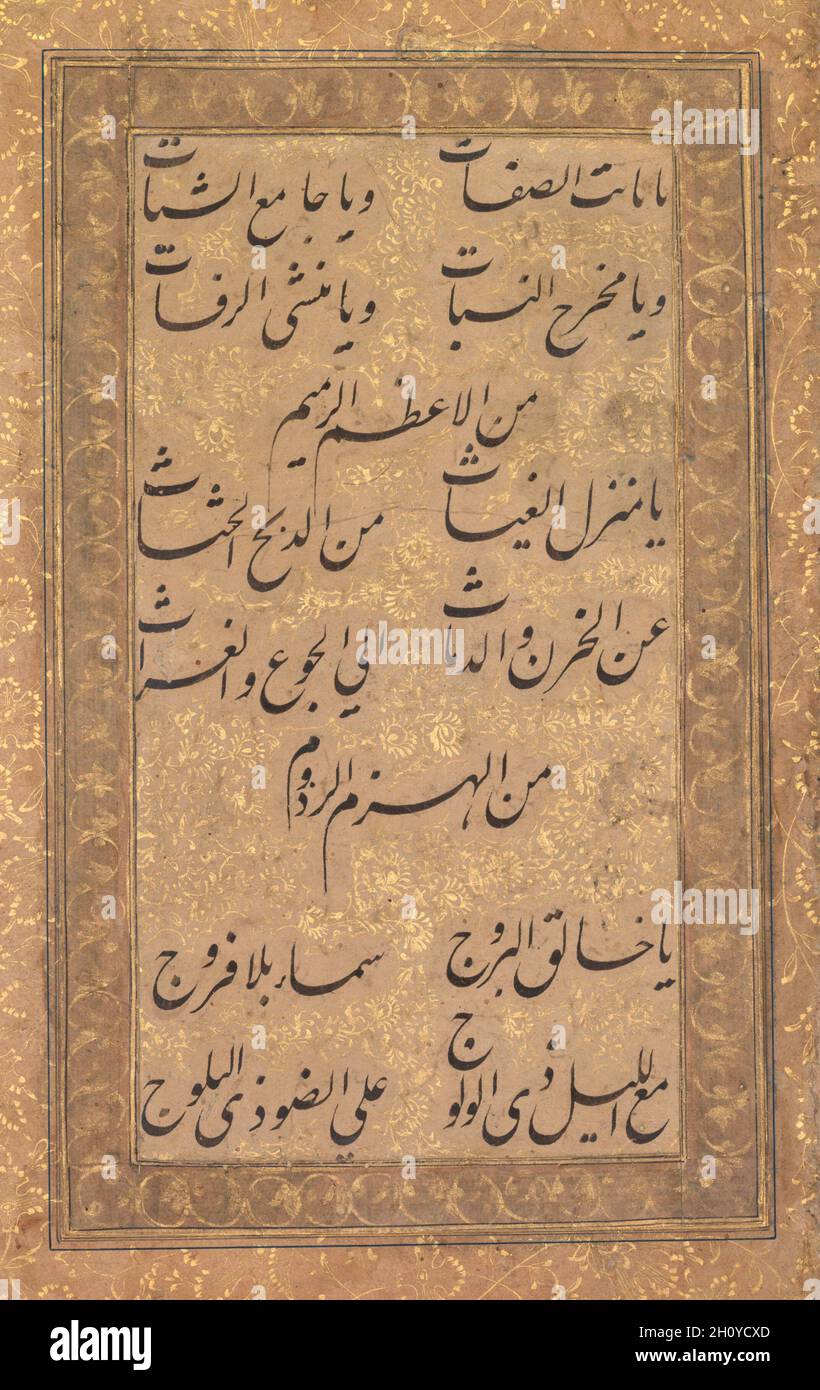 الصفات ويا جامع الشتات
ويا مخرج النبات ويا منشي الرفات
من الاعظم الرميم
يا منزل الغياث من الدبح الحثاث
عن الحزن والدثاث الي الجوع والغراث
من الهزم الرذوم
يا خالق البروج سماء بلا فروج
مع الليل ذي الولوج علي الضوذي البلوج
alamy
alamy
Image ID: 2H0YCXD
www.alamy.com